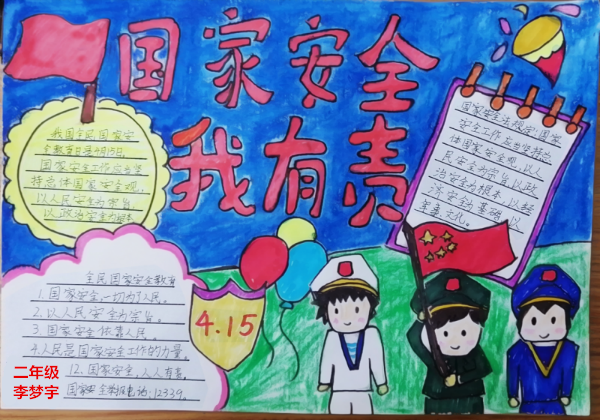 国家安全
我有责
我国全民国家安
全教育日是4月15日。
国家安全工作应当坚
持总体国家安全观,
以人民安全为宗旨
以政治安全为根本
国家安全法规定:国家
安全工作应当坚持总
体国家安全观,以人
民安全为宗旨以政
治安全为根本以经
济安全为基础以
文化。
4.15
全民国家安全教育
1.国家安全一切为了人民。
2.以人民安全为宗旨。
3.国家安全依靠人民。
4.人民是国家安全工作的力量。
12.国家安全,人人有责。
国家安全举报电话:12339。
二年级
李梦宇